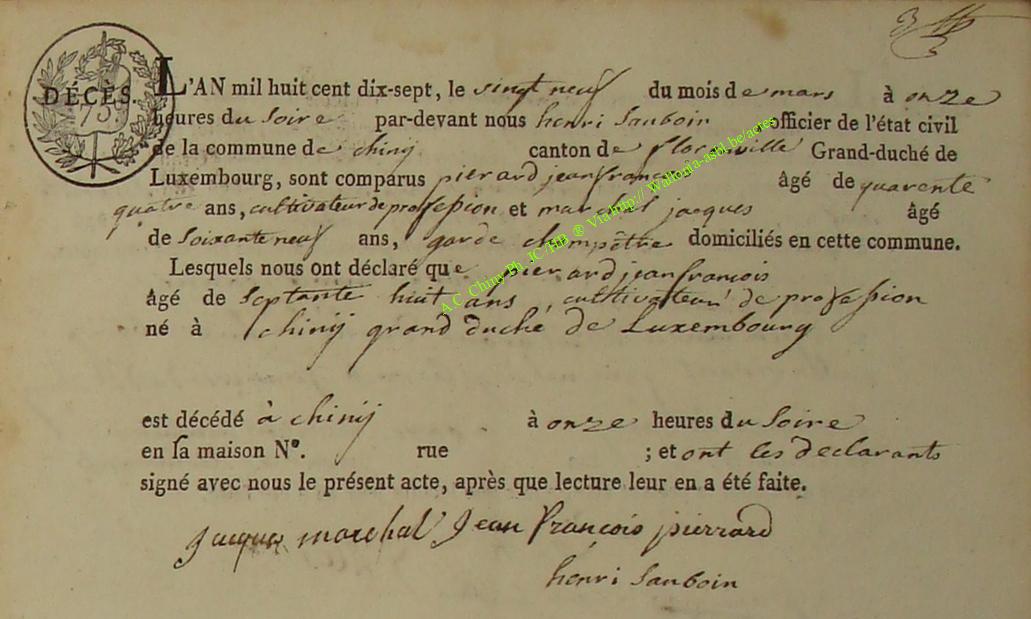 DÉCÈS.
73
L'AN mil huit cent dix-sept, le vingt neuf du mois de mars à onze
heures du Soire par-devant nous henri Sauboin officier de l'état civil
de la commune de chinij canton de florenville Grand-duché de
Luxembourg, sont comparus pierard jean francois âgé de quarente
quatre ans, cultivateur de profession et marchal jacques âgé
de soixante neuf ans, garde champêtre domiciliés en cette commune.
Lesquels nous ont déclaré que pierard jean francois
âgé de Septante huit ans, cultivateur de profession
né à chinij grand duché de Luxembourg
est décédé à chinij à onze heures du Soire
en sa maison N°. rue ; et ont les declarants
signé avec nous le présent acte, après que lecture leur en a été faite.
jacques marchal Jean françois pierrard
henri Sauboin
A.C. Chiny Ph. JC /HB ® Via http:// Wallonia-asbl.be/actes